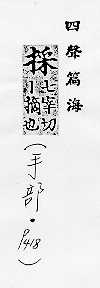 四聲篇海
採七宰切
小摘也
(手部·P418)